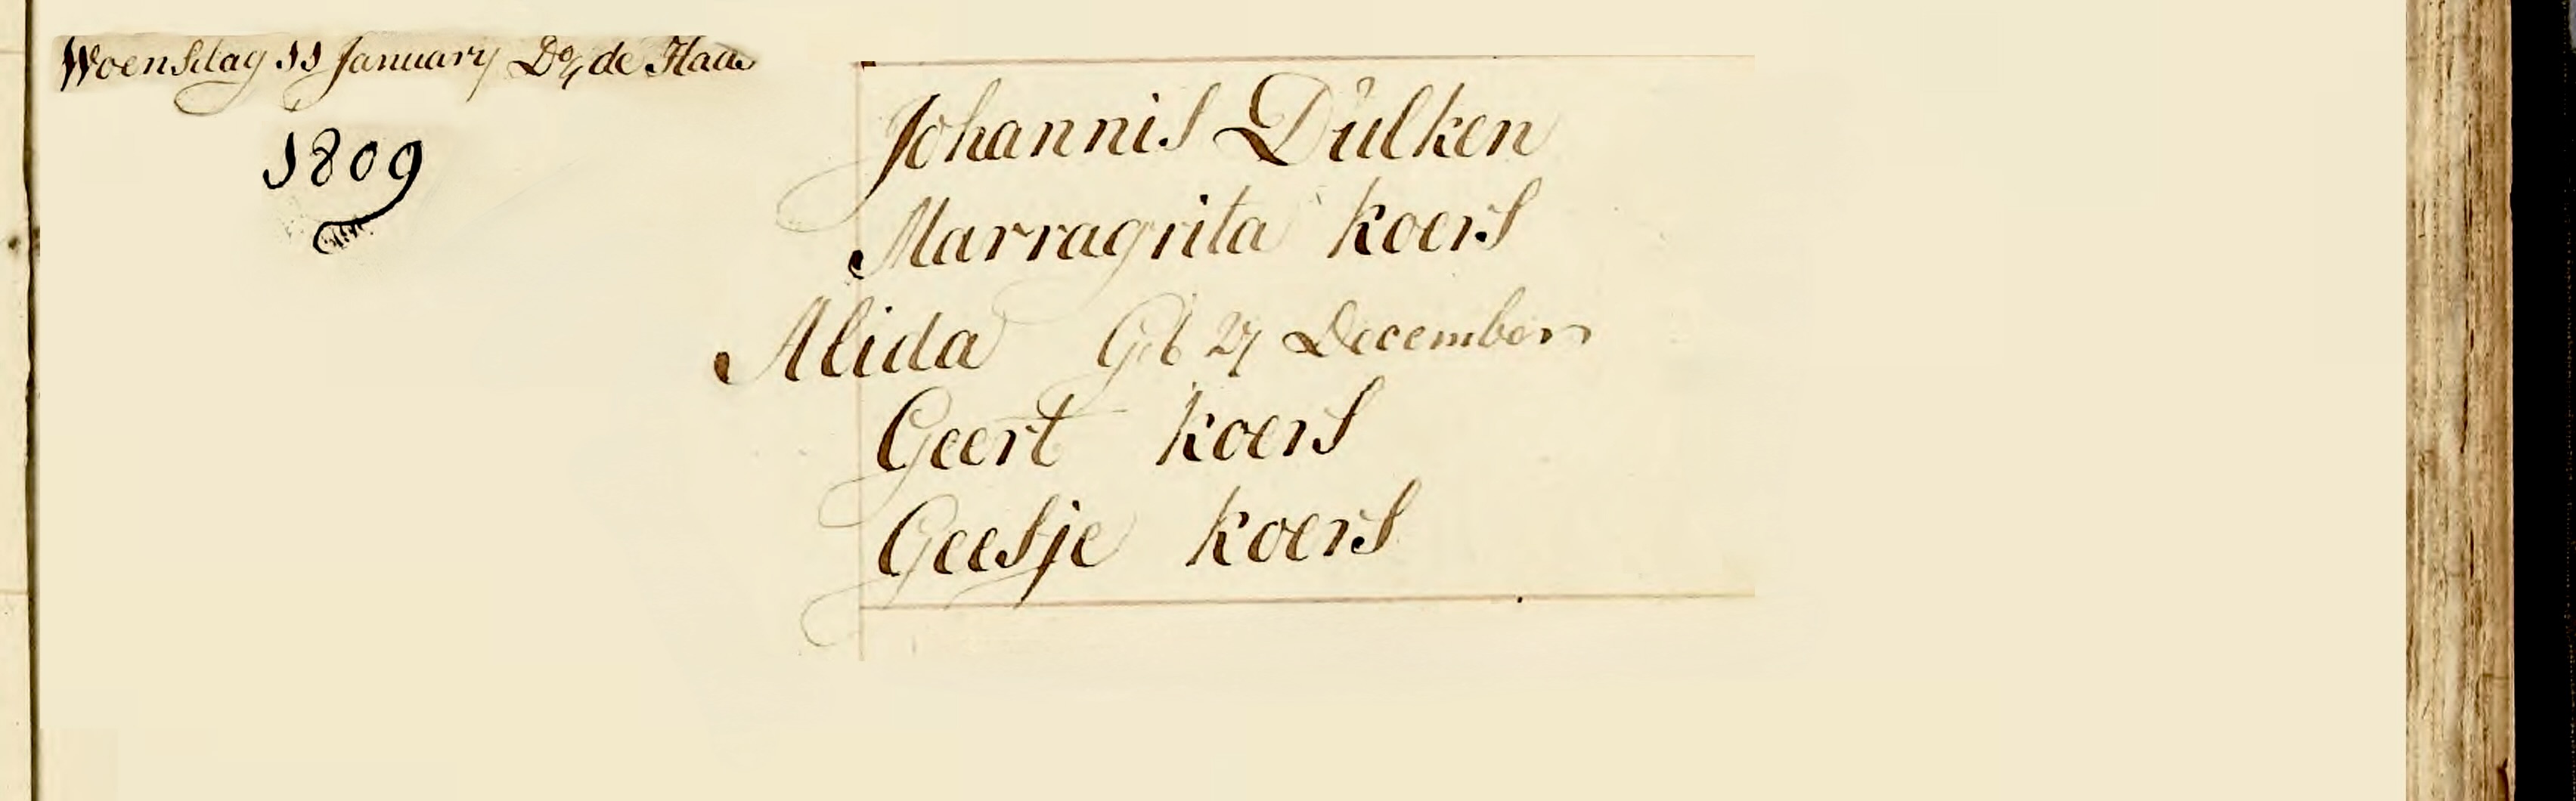 Woensdag 11 January Do. de Haan
1809
Johannis Dulken
Marragrita Koers
Alida Geb 27 December
Geert Koers
Geesje Koers